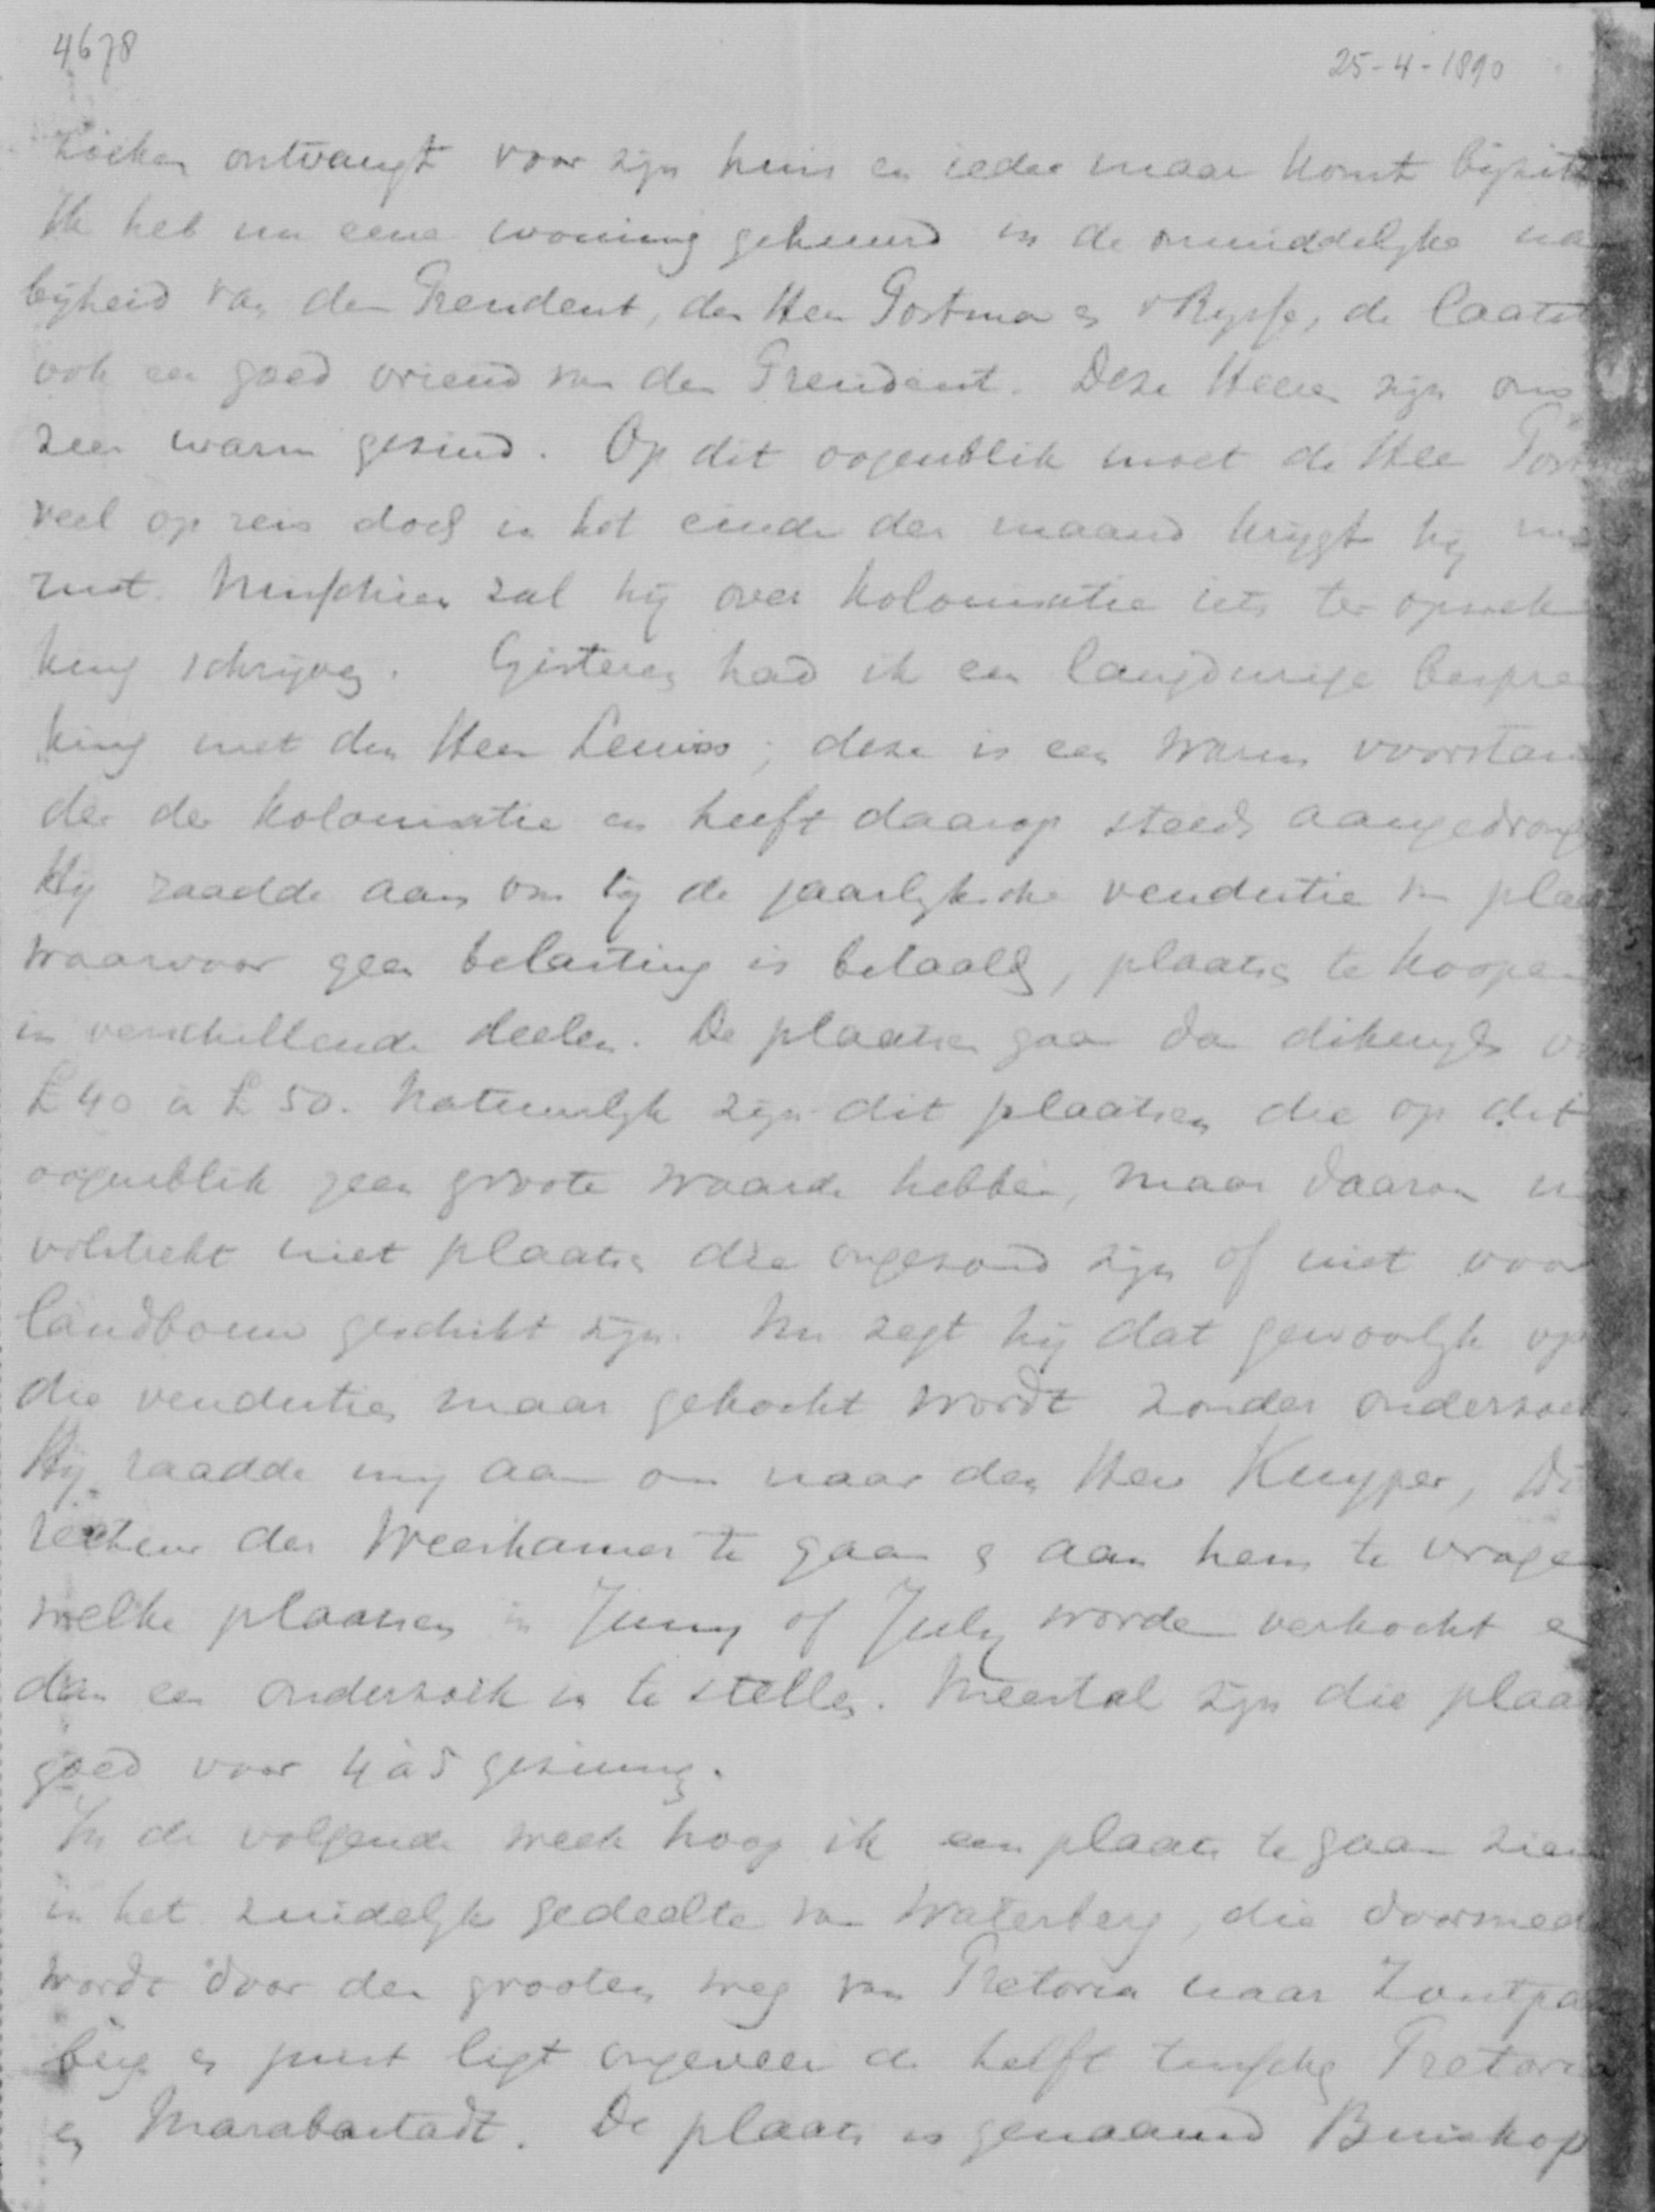 4678
25-4-1890
zoeken ontvangt voor zijn huis en ieder maar komt
Ik heb nu eene woning gehuurd in de onmiddelyke na
byheid van den President, den Heer Postma en de laatst
ook een goed vriend van den President. Deze Heeren zijn ons
zeer warm gezind. Op dit oogenblik moet de Heer Postma
veel op reis doch in het einde der maand krygt hy
rust. Misschien zal hij over kolonisatie iets ter opwek
king schrijven. Gisteren had ik een langdurige bespre
king met den Heer Lewiss; deze is een warm voorstan
der der kolonisatie en heeft daarop steeds aangedrong
Hij raadde aan om bij de jaarlyksche vendutie van plaats
waarvoor geen belasting is betaald, plaatsen te koopen
in verschillende deelen. De plaatsen gaan dan dikwyls
£ 40 à £ 50. Natuurlyk zijn dit plaatsen die op dit
oogenblik geen groote waarde hebben, maar daarom nog
volstrekt niet plaatsen die ongezond zijn of niet voor
landbouw geschikt zijn. Nu zegt hij dat gewoonlyk op
die venduties maar gekocht wordt zonder onderzoek
Hij raadde my aan om naar den Heer Kuyper, Di
recteur der Weeskamer te gaan en aan hem te vragen
welke plaatsen in Juny of July worden verkocht en
dan een onderzoek in te stellen. Meestal zijn die plaats
goed voor 4 à 5 gezinnen.
In de volgende week hoop ik een plaats te gaan zien
in het zuidelyk gedeelte van Waterberg, die
wordt door den grooten weg van Pretoria naar Zoutpans
berg en juist ligt ongeveer de helft tusschen Pretoria
en Marabastadt. De plaats is genaamd Buiskop